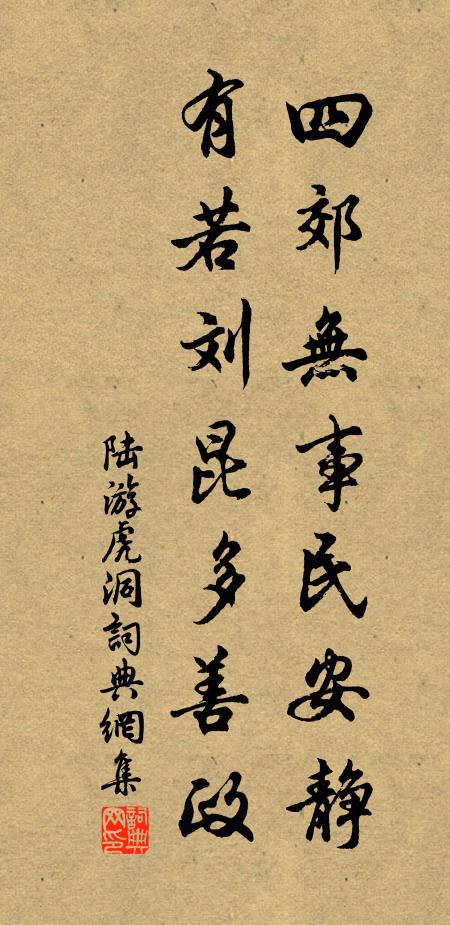 四郊無事民安静
有若刘昆多善政
陆游虎洞詞典網集
詞典网印